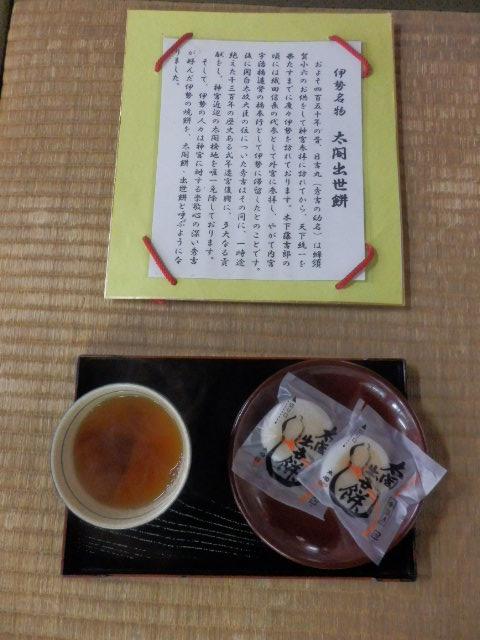 伊勢名物　太閤出世餅
およそ四百五十年の昔、日吉丸（秀吉の幼名）は蜂須
賀小六のお供をして神宮参拝に訪れてから、天下統一を
果たすまでに度々伊勢を訪れております。木下藤吉郎の
頃には織田信長の代参として外宮に参拝し、やがて内宮
宇治橋造営の橋奉行として伊勢に滞留したとのことです。
後に関白太政大臣の位についた秀吉はその間に、一時途
絶えた千三百年の歴史ある式年遷宮復興に、多大なる貢
献をし、神宮近辺の太閤検地を唯一免除しております。
そして、伊勢の人々は神宮に対する崇敬心の深い秀吉
が好んだ伊勢の焼餅を、太閤餅、出世餅と呼ぶようにな
りました。
太閤
出世餅
太閤
出世餅